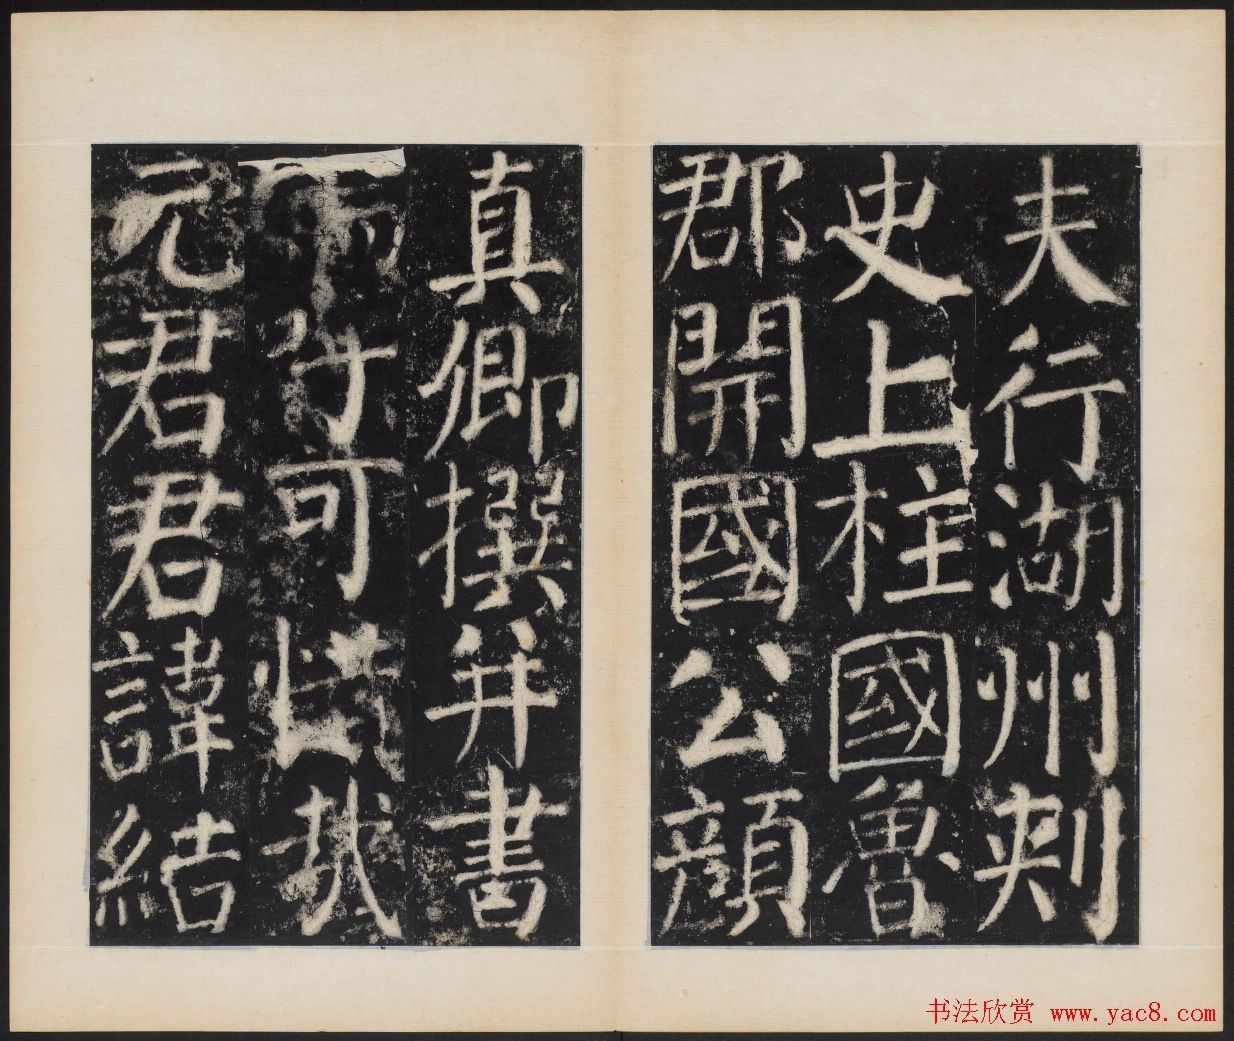 夫行湖州刺
史上柱國魯
郡開國公顏
真卿撰并書
可惜哉
元君君諱結
书法欣赏 www.yac8.com